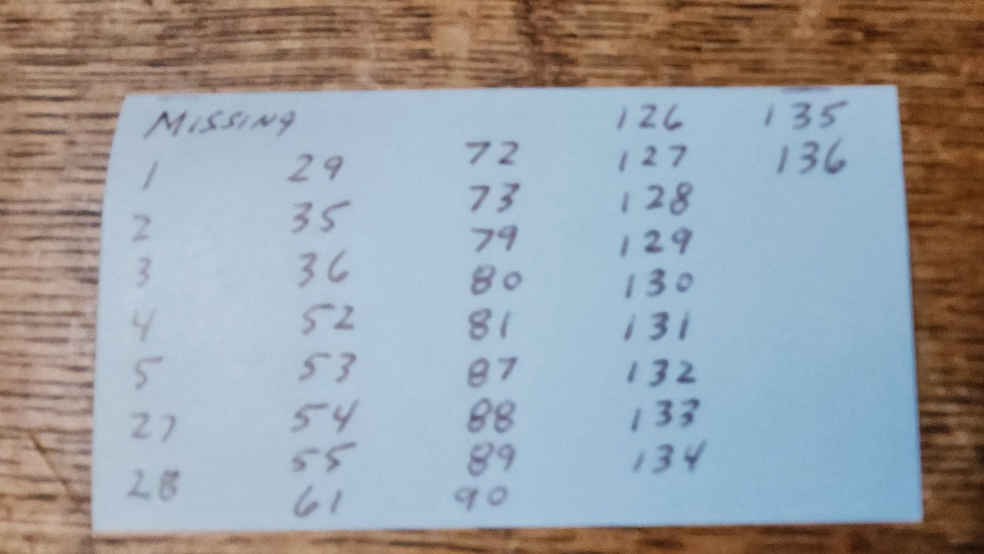 Missing
1
2
3
4
5
27
28
29
35
36
52
53
54
55
61
72
73
79
80
81
87
88
89
90
126
127
128
129
130
131
132
133
134
135
136